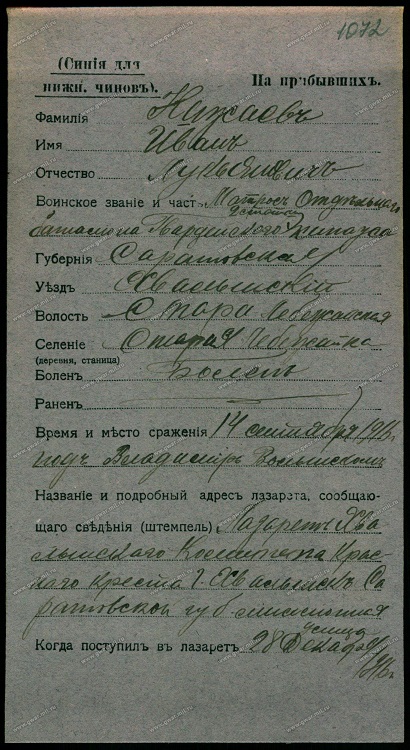 1072
(Синія для
нижн. чиновъ).
На прибывшихъ.
Фамилія Нужаевъ
Имя Иванъ
Отчество Лукьяновичъ
Воинское званіе и часть Матросъ Отдѣльнаго
баталіона Гвардейскаго экипажа
Губернія Саратовская
Уѣздъ Хвалынскій
Волость Старо Лебежайская
Селеніе Старая Лебежайка
(деревня, станица)
Боленъ Боленъ
Раненъ
Время и мѣсто сраженія 14 сентябрь 1916
годъ Владиміръ Волынскомъ
Названіе и подробный адресъ лазарета, сообщаю-
щаго свѣдѣнія (штемпель) Лазаретъ Хва
лынскаго Комитета Крас
наго Креста г. Хвалынскъ Са
ратовской губ
улица
Когда поступилъ въ лазаретъ 28 Декабря
1916